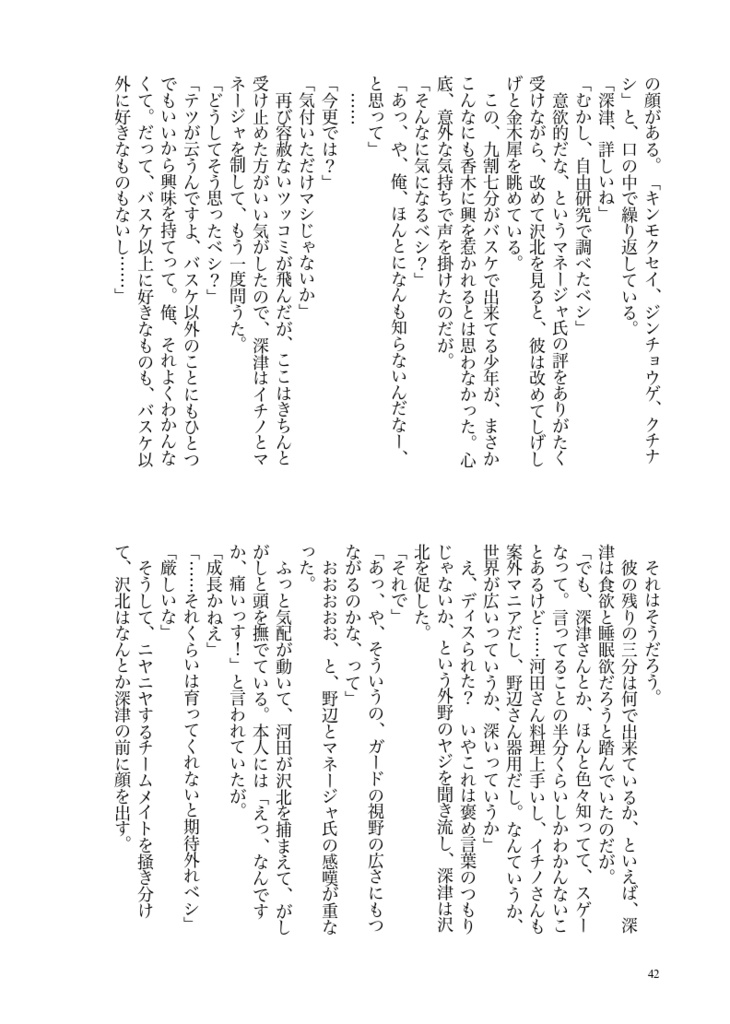 の顔がある。「キンモクセイ、ジンチョウゲ、クチナ
シ」と、口の中で繰り返している。
「深津、詳しいね」
「むかし、自由研究で調べたベシ」
　意欲的だな、というマネージャ氏の評をありがたく
受けながら、改めて沢北を見ると、彼は改めてしげし
げと金木犀を眺めている。
　この、九割七分がバスケで出来てる少年が、まさか
こんなにも香木に興を惹かれるとは思わなかった。心
底、意外な気持ちで声を掛けたのだが。
「そんなに気になるベシ？」
「あっ、や、俺、ほんとになんも知らないんだなー、
と思って」
　……
「今更では？」
「気付いただけマシじゃないか」
　再び容赦ないツッコミが飛んだが、ここはきちんと
受け止めた方がいい気がしたので、深津はイチノとマ
ネージャを制して、もう一度問うた。
「どうしてそう思ったベシ？」
「テツが云うんですよ、バスケ以外のことにもひとつ
でもいいから興味を持てって。俺、それよくわかんな
くて。だって、バスケ以上に好きなものも、バスケ以
外に好きなものもないし……」
　それはそうだろう。
　彼の残りの三分は何で出来ているか、といえば、深
津は食欲と睡眠欲だろうと踏んでいたのだが。
「でも、深津さんとか、ほんと色々知ってて、スゲー
なって。言ってることの半分くらいしかわかんないこ
とあるけど……河田さん料理上手いし、イチノさんも
案外マニアだし、野辺さん器用だし。なんていうか、
世界が広いっていうか、深いっていうか」
　え、ディスられた？　いやこれは褒め言葉のつもり
じゃないか、という外野のヤジを聞き流し、深津は沢
北を促した。
「それで」
「あっ、や、そういうの、ガードの視野の広さにもつ
ながるのかな、って」
　おおおおお、と、野辺とマネージャ氏の感嘆が重な
った。
　ふっと気配が動いて、河田が沢北を捕まえて、がし
がしと頭を撫でている。本人には「えっ、なんです
か、痛いっす！」と言われていたが。
「成長かねえ」
「……それくらいは育ってくれないと期待外れベシ」
「厳しいな」
　そうして、ニヤニヤするチームメイトを掻き分け
て、沢北はなんとか深津の前に顔を出す。
42